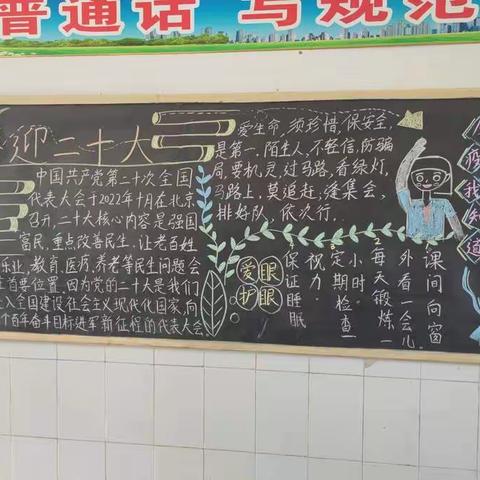 普通话 写规范
迎二十大
中国共产党第二十次全国
代表大会于2022年10月在北京
召开,二十大核心内容是强国
富民,重点改善民生,让老百姓
乐业,教育,医疗,养老等民生问题
主首要位置,因为党的二十大是我们
全国建设社会主义现代化国家,向
个百年奋斗目标进军新征程的代表大会
爱生命,须珍惜,保安全,
是第一,陌生人,不轻信,防骗
局,要机灵,过马路,看绿灯,
马路上,莫追赶,逢集会,
排好队,依次行.
爱眼
护眼
保证睡眠
视力
定期检查
小时
每天锻炼一
外看一会儿
课间向窗
疫
我
知
道